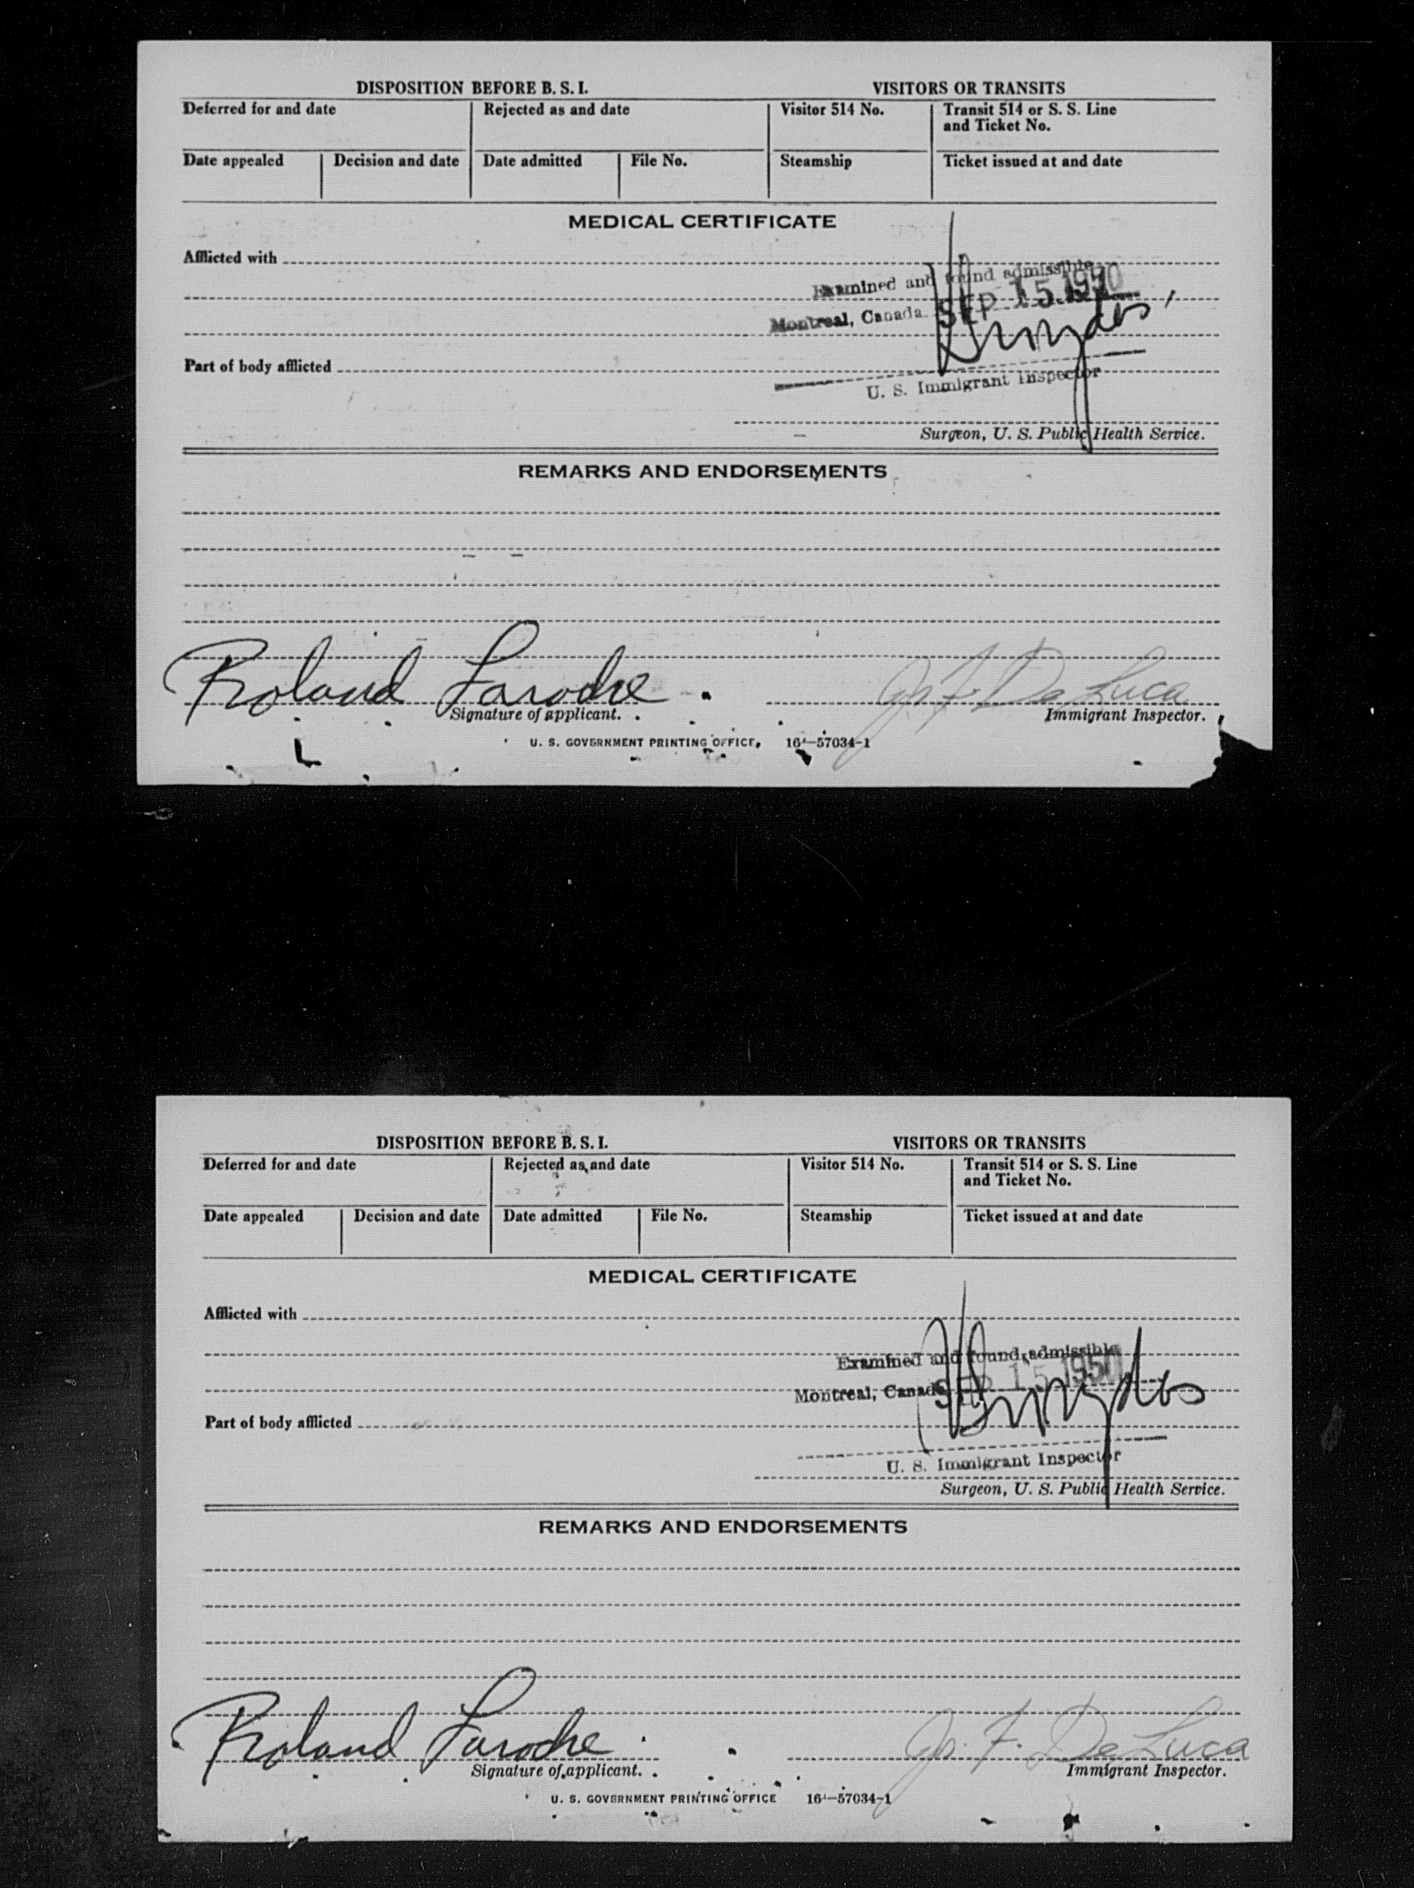 DISPOSITION BEFORE B. S. I. VISITORS OR TRANSITS
Deferred for and date Rejected as and date Visitor 514 No. Transit 514 or S. S. Line
and Ticket No.
Date appealed Decision and date Date admitted File No. Steamship Ticket issued at and date
MEDICAL CERTIFICATE
Afflicted with
Examined and found admissible
Montreal, Canada SEP 15 1950
Part of body afflicted
U. S. Immigrant Inspector
Surgeon, U. S. Public Health Service.
REMARKS AND ENDORSEMENTS
Roland Laroche De Luca
Signature of applicant. Immigrant Inspector.
U. S. GOVERNMENT PRINTING OFFICE 16—57034-1
DISPOSITION BEFORE B. S. I. VISITORS OR TRANSITS
Deferred for and date Rejected as and date Visitor 514 No. Transit 514 or S. S. Line
and Ticket No.
Date appealed Decision and date Date admitted File No. Steamship Ticket issued at and date
MEDICAL CERTIFICATE
Afflicted with
Examined and found admissible
Montreal, Canada SEP 15 1950
Part of body afflicted
U. S. Immigrant Inspector
Surgeon, U. S. Public Health Service.
REMARKS AND ENDORSEMENTS
Roland Laroche F. De Luca
Signature of applicant. Immigrant Inspector.
U. S. GOVERNMENT PRINTING OFFICE 16—57034-1